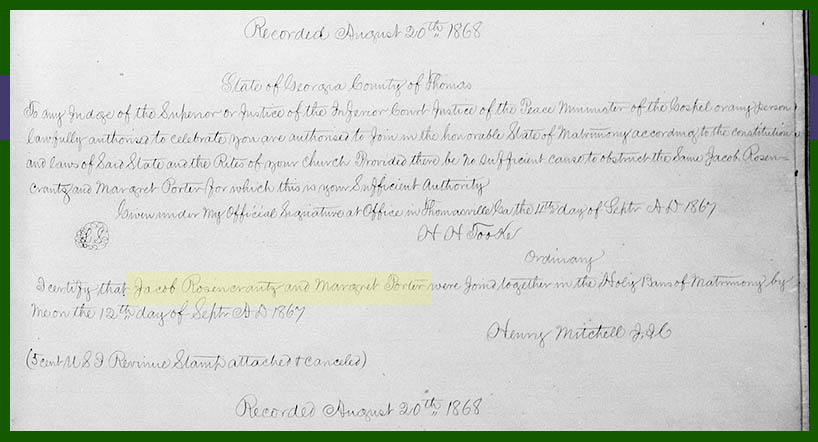 Recorded August 20th 1868
State of Georgia County of Thomas
To any Judge of the Superior or Justice of the Inferior Court Justice of the Peace Minister of the Gospel or any person
lawfully authorised to celebrate you are authorised to Join in the honorable State of Matrimony according to the constitution
and laws of Said State and the Rites of your Church Provided there be no sufficient cause to obstruct the Same Jacob Rosen-
crantz and Margret Porter for which this is your Sufficient Authority
Given under My Official Signature at Office in Thomasville Ga the 11th day of Septr A D 1867
H H Tooke
Ordinary
I certify that Jacob Rosencrantz and Margret Porter were Joind together in the Holy Bans of Matrimony by
me on the 12th day of Septr A D 1867
Henry Mitchell
(5 cent U S I Revinue Stamp attached & canceled)
Recorded August 20th 1868